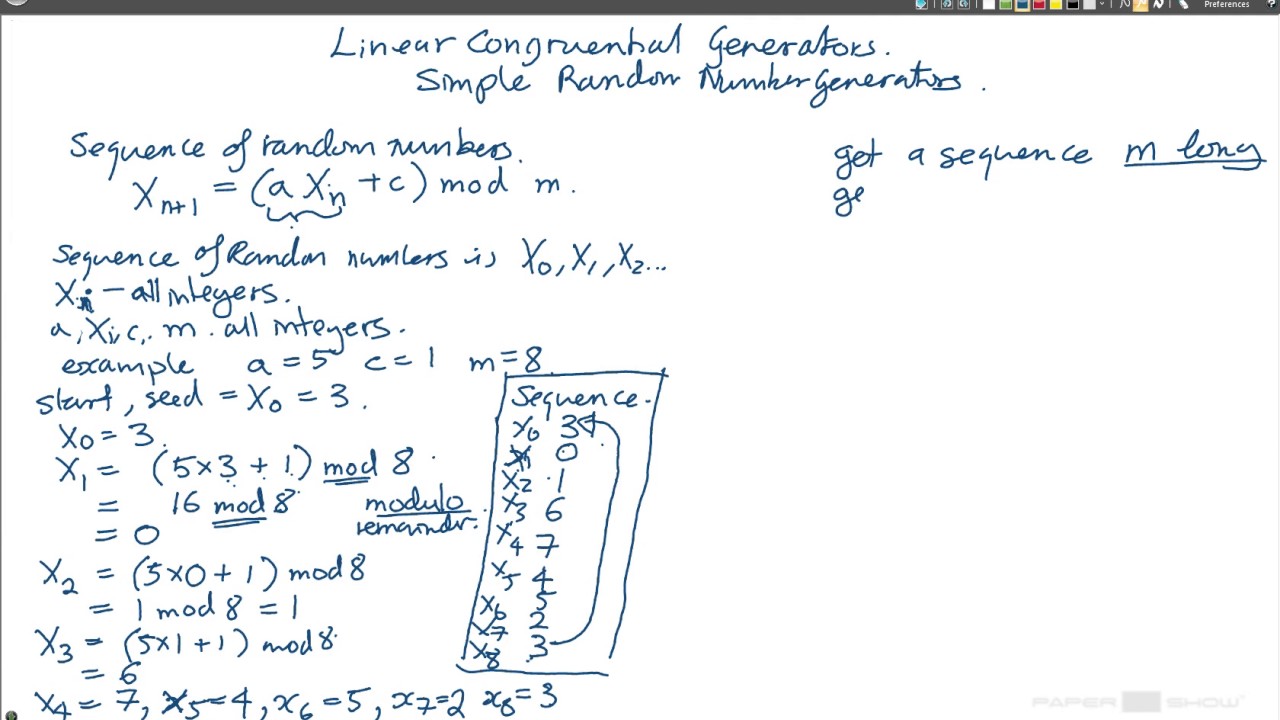 Preferences
Linear Congruential Generators.
Simple Random Number Generators.
Sequence of random numbers.
X_{n+1} = (a X_n + c) mod m.
Sequence of Random numbers is X_0, X_1, X_2...
X_n - all integers.
a, X_i, c, m. all integers.
example a = 5 c = 1 m = 8
start, seed = X_0 = 3.
X_0 = 3.
X_1 = (5×3 + 1) mod 8
= 16 mod 8
= 0
modulo
remainder.
X_2 = (5×0 + 1) mod 8
= 1 mod 8 = 1
X_3 = (5×1 + 1) mod 8
= 6
X_4 = 7, X_5 = 4, x_6 = 5, x_7 = 2 x_8 = 3
Sequence.
X_0 3
X_1 0
X_2 1
X_3 6
X_4 7
X_5 4
X_6 5
X_7 2
X_8 3
get a sequence m long
ge
PAPER SHOW